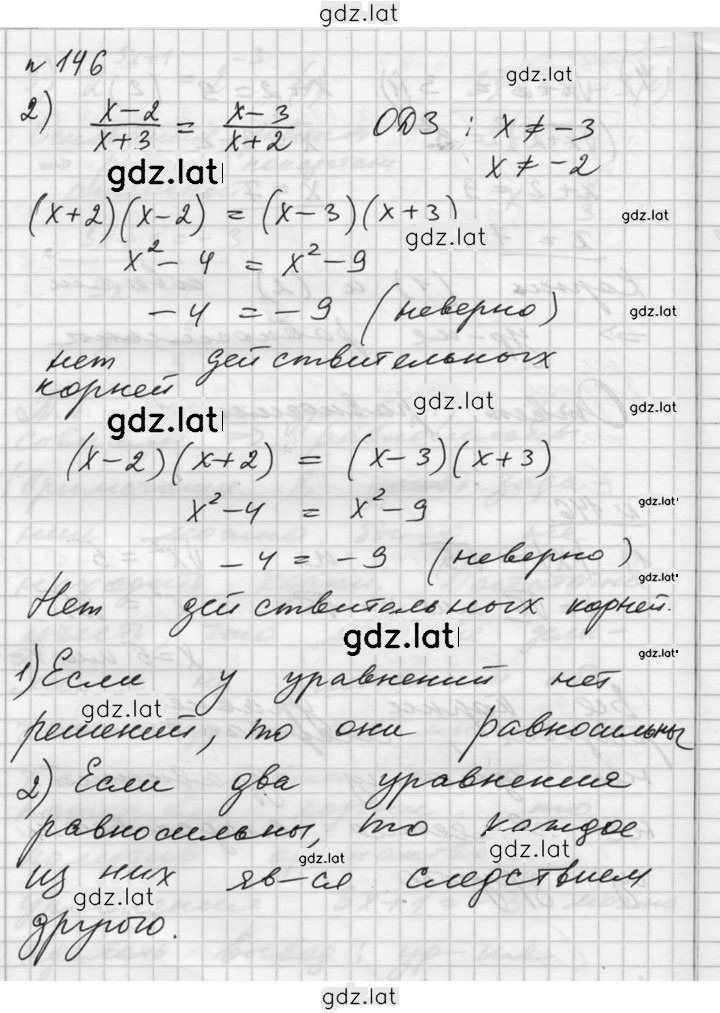 gdz.lat
n 146
gdz.lat
2) (x-2)/(x+3) = (x-3)/(x+2) ОДЗ: x ≠ -3
x ≠ -2
gdz.lat
(x+2)(x-2) = (x-3)(x+3)
gdz.lat
gdz.lat
x² - 4 = x² - 9
-4 = -9 (неверно)
gdz.lat
нет действительных
корней
gdz.lat
gdz.lat
gdz.lat
(x-2)(x+2) = (x-3)(x+3)
x² - 4 = x² - 9
gdz.lat
-4 = -9 (неверно)
gdz.lat
Нет действительных корней.
gdz.lat
gdz.lat
1) Если у уравнений нет
gdz.lat
решений, то они равносильны
2) Если два уравнения
равносильны, то каждое
gdz.lat
gdz.lat
из них яв-ся следствием
gdz.lat
другого.
gdz.lat